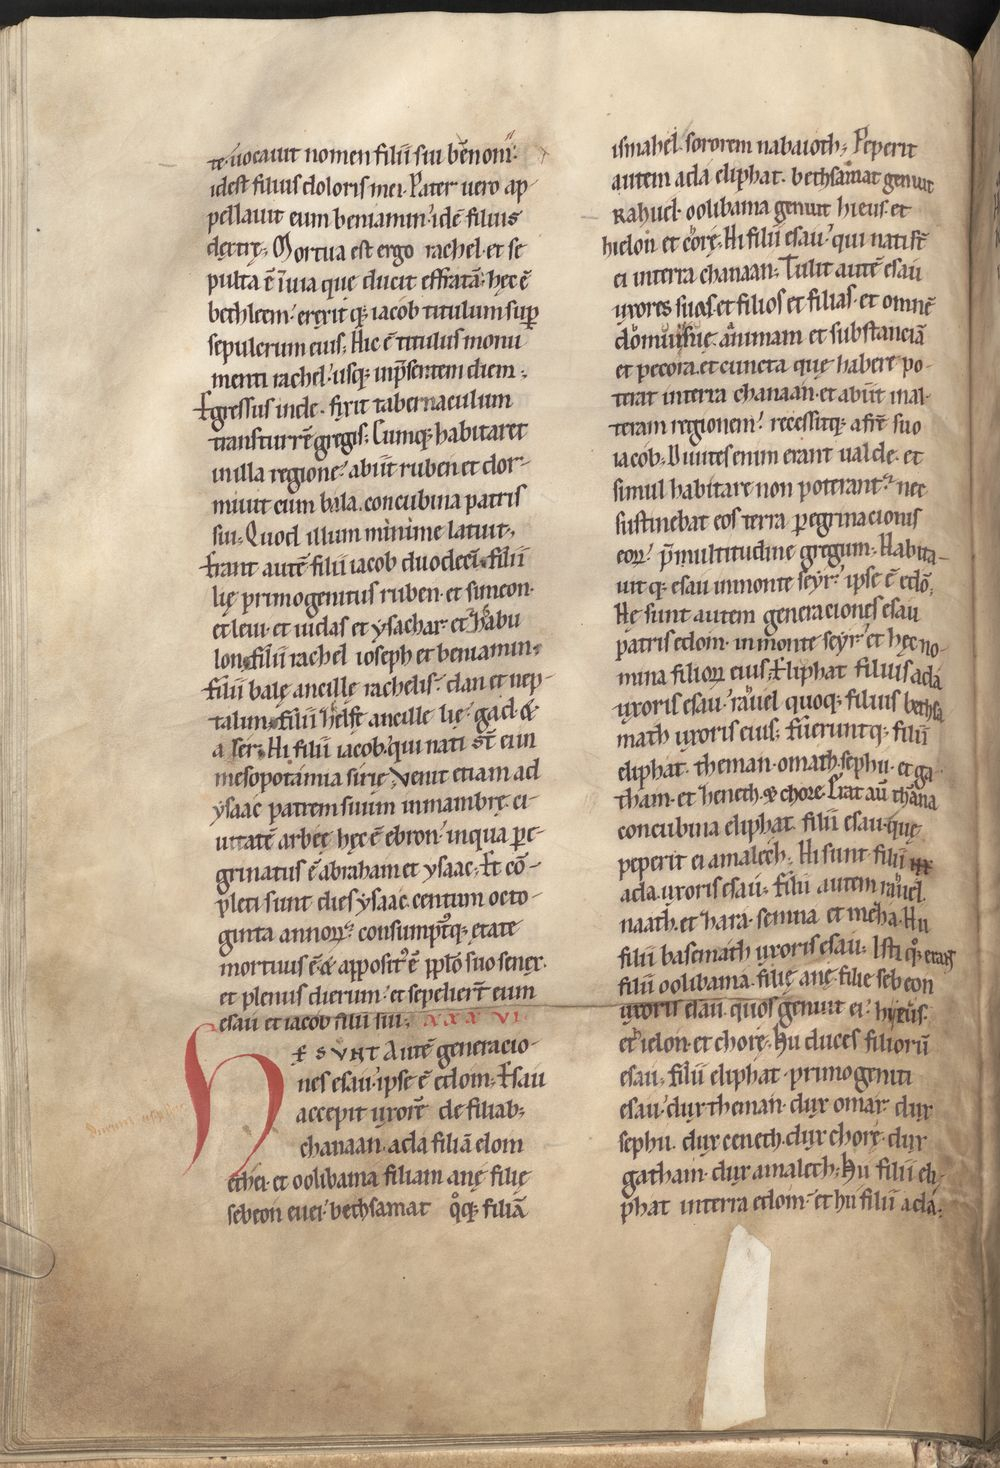 te uocauit nomen filii sui bēnoni.
idest filius doloris mei. Pater uero ap-
pellauit eum beniamin. idē filius
dextrę; Mortua est ergo rachel. et se
pulta ē ī uia que ducit effratā. hęc ē
bethleem. erexitq; iacob titulum sup
sepulcrum eius; Hic ē titulus monu
menti rachel. usq; inp̄sentem diem;
Egressus inde. fixit tabernaculum
transturrē gregis; Cumq; habitaret
in illa regione. abiit ruben et dor-
miuit cum bala. concubina patris
sui; Quod illum minime latuit;
Erant autē filii iacob duodecī. filii
lię primogenitus ruben. et simeon.
et leui. et iudas et ysachar. et zabu
lon. filii rachel ioseph et beniamin.
filii balę ancille rachelis. dan et nep-
talim. filii zelfę ancille lię. gad &
a ser; Hi filii iacob. qui nati st̄ ei in
mesopotamia sirię; Venit etiam ad
ysaac patrem suum in mambrę. ci-
uitatē arbeę hęc ē ebron. in qua pe-
grinatus ē abraham et ysaac; Et cō-
pleti sunt dies ysaac. centum octo-
ginta annorꝝ. consumptꝰq; ętate
mortuus ē. & apposit' ē pplo suo senex.
et plenus dierum. et sepelier̄t eum
esau et iacob filii sui; XXXVI.
HE SVNT Autē generacio-
nes esau. ipse ē edom; Esau
accepit uxorē de filiab;
chanaan. ada filiā elom
ethei. et oolibama filiam anę filię
sebeon euei. bethsamat qͦq; filiā
ismahel. sororem nabaioth; Peperit
autem ada eliphat. bethsamat genuit
Rahuel. oolibama genuit hieus. et
hielon. et corę; Hi filii esau. qui nati st̄
ei in terra chanaan; Tulit autē esau
uxores suas. et filios et filias. et omnē
domus suę animam et substanciā
et pecora. et cuncta quę habere po-
terat in terra chanaan. et abiit in al-
teram regionem. recessitq; a fr̄e suo
iacob; Diuites enim erant ualde. et
simul habitare non poterant. nec
sustinebat eos terra peregrinacionis
eorꝝ. p̄ multitudine gregum; Habita-
uitq; esau in monte seyr. ipse ē edō;
Hę sunt autem generaciones esau
patris edom. in monte seyr. et hęc no-
mina filiorꝝ eius; Eliphat filius ada
uxoris esau. rauel quoq; filius bethsa
math uxoris eius; fueruntq; filii
eliphat. theman. omath. sephu. et ga
tham. et henech. & chore. Erat aū thāna
concubina eliphat filii esau. quę
peperit ei amalech; Hi sunt filii
ada. uxoris esau; filii autem rauel.
naath. et hara. semna et meha. Hii
filii basemath uxoris esau; Isti qͦq; erant
filii oolibama. filię anę filie sebeon
uxoris esau. quos genuit ei. hyeus.
et ielon. et chorę; Hii duces filiorū
esau; filii eliphat. primogeniti
esau. dux theman. dux omar. dux
sephu. dux cenech. dux chorę. dux
gatham. dux amalech; Hii filii eli-
phat in terra edom. et hii filii ada.